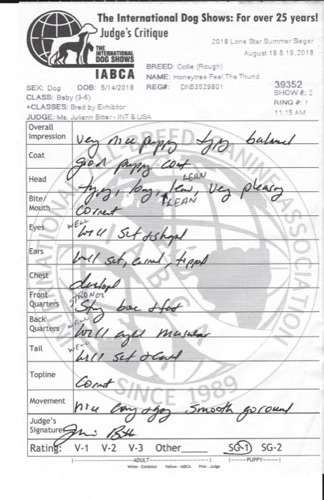 The International Dog Shows: For over 25 years!
Judge's Critique
THE INTERNATIONAL DOG SHOWS
IABCA
2018 Lone Star Summer Sieger
August 18 & 19, 2018
BREED: Collie (Rough)
NAME: Honeytree Feel The Thund
SEX: Dog DOB: 5/14/2018 REG#: DN53529801
39352
CLASS: Baby (3-6)
SHOW #: 2
+CLASSES: Bred by Exhibitor
RING #: 1
JUDGE: Ms. Juliann Bitter - INT & USA
11:15 AM
Overall Impression very nice puppy typy balanced
Coat good puppy coat
Head typy, long, lean, LEAN very pleasing
Bite/Mouth correct
Eyes WELL well set & shaped
Ears well set, carried, tipped
Chest developed
Front Quarters STRONG Strong bone & feet
Back Quarters WELL well angled muscular
Tail WELL well set
Topline Correct
Movement nice easy smooth go round
Judge's Signature
Rating: V-1 V-2 V-3 Other SG-1 SG-2
ADULT PUPPY
White - Exhibitor Yellow - IABCA Pink - Judge
INTERNATIONAL ALL BREED CANINE ASSOCIATION
IABCA
SINCE 1989